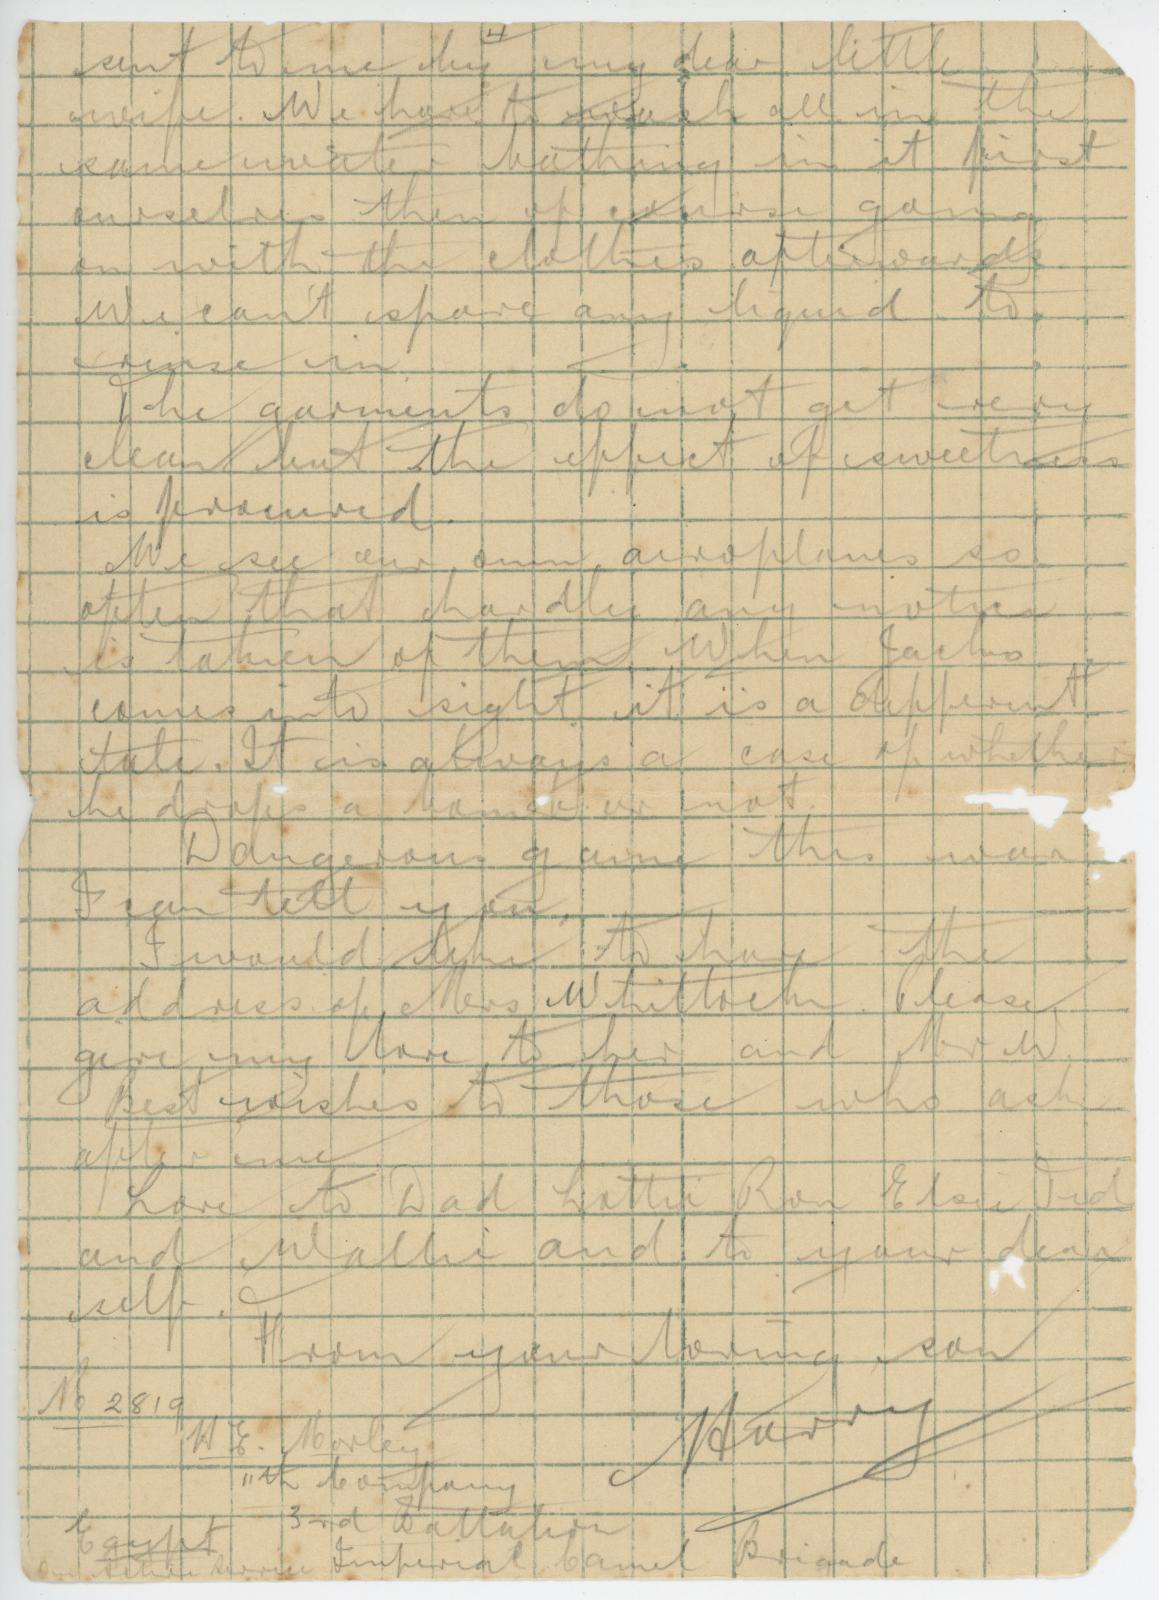 4
sent to me by my dear little
wife. We have to wash all in the
same water bathing in it first
ourselves then of course going
on with the clothes afterwards.
We can't spare any liquid to
rinse in.
The garments do not get very
clean but the effect of sweetness
is procured.
We see our own aeroplanes so
often that hardly any notice
is taken of them. When Jacko
comes into sight it is a different
tale. It is always a case of whether
he drops a bomb or not.
Dangerous game this war
I can tell you.
I would like to have the
address of Mrs Whittock. Please
give my love to her and Mr W.
Best wishes to those who ask
after me
Love to Dad Lottie Ron Elsie Sid
and Wallie and to your dear
self.
From your loving son
Harry
No 2819
H E. Morley
11th Company
3rd Battalion
Egypt Imperial Camel Brigade
On Active Service